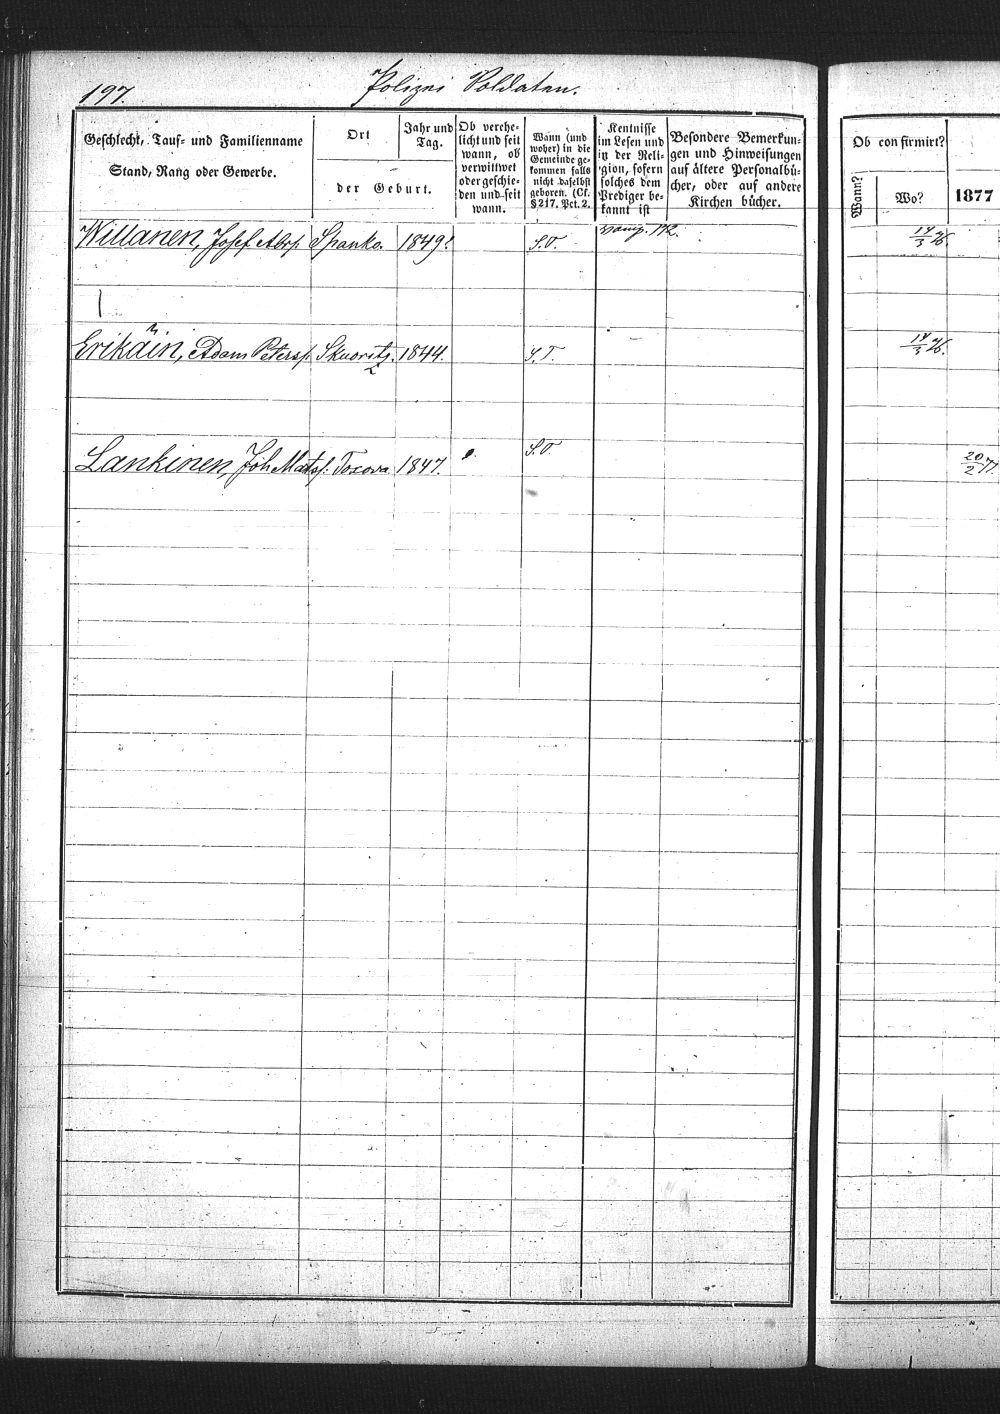 197. Polizei Soldaten.
Geschlecht, Tauf- und Familienname
Stand, Rang oder Gewerbe.
Ort
Jahr und
Tag.
der Geburt.
Ob verehe-
licht und seit
wann, ob
verwittwet
oder geschie-
den und seit
wann.
Wann (und
woher) in die
Gemeinde ge-
kommen falls
nicht daselbst
geboren. (Cf.
§ 217. Pct. 2.
Kentnisse
im Lesen und
in der Reli-
gion, sofern
solches dem
Prediger be-
kannt ist
Besondere Bemerkun-
gen und Hinweisungen
auf ältere Personalbü-
cher, oder auf andere
Kirchen bücher.
Ob confirmirt?
Wann?
Wo?
1877
Willanen, Josef Abrs. Spanko. 1849. S.T. 14/3 76.
Erikäin, Adam Peterss. Skuoritz. 1844. S.T. 14/3 76.
Lankinen, Joh. Matss. Toxova. 1847. S.T. 20/2 77.